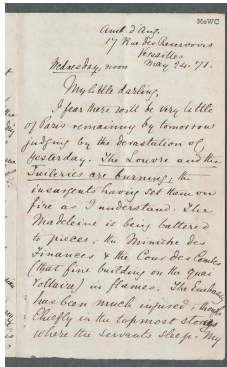 MeWC
Amb. d'Ang.
17 Rue des Reservoirs
Versailles
May 24. 71.
Wednesday, noon
My little darling,
I fear there will be very little
of Paris remaining by tomorrow
judging by the devastation of
yesterday. The Louvre and the
Tuileries are burning, the
insurgents having set them on
fire as I understand. The
Madeleine is being battered
to pieces. the Ministre des
Finances & the Cour des Comtes
(that fine building on the quai
Voltaire) in flames. The Embassy
has been much injured, though
Chiefly in the topmost stories
where the servants sleep. My